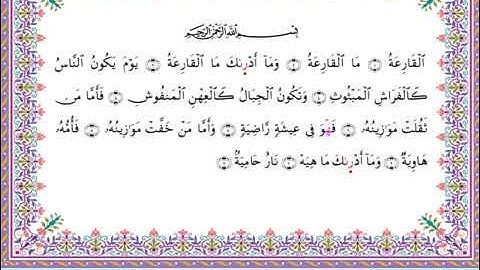 بِسْمِ ٱللَّهِ ٱلرَّحْمَٰنِ ٱلرَّحِيمِ
ٱلْقَارِعَةُ ۝ مَا ٱلْقَارِعَةُ ۝ وَمَآ أَدْرَىٰكَ مَا ٱلْقَارِعَةُ ۝ يَوْمَ يَكُونُ ٱلنَّاسُ
كَٱلْفَرَاشِ ٱلْمَبْثُوثِ ۝ وَتَكُونُ ٱلْجِبَالُ كَٱلْعِهْنِ ٱلْمَنفُوشِ ۝ فَأَمَّا مَن
ثَقُلَتْ مَوَٰزِينُهُۥ ۝ فَهْوَ فِى عِيشَةٍ رَّاضِيَةٍ ۝ وَأَمَّا مَنْ خَفَّتْ مَوَٰزِينُهُۥ ۝ فَأُمُّهُۥ
هَاوِيَةٌ ۝ وَمَآ أَدْرَىٰكَ مَا هِيَهْ ۝ نَارٌ حَامِيَةٌۢ ۝